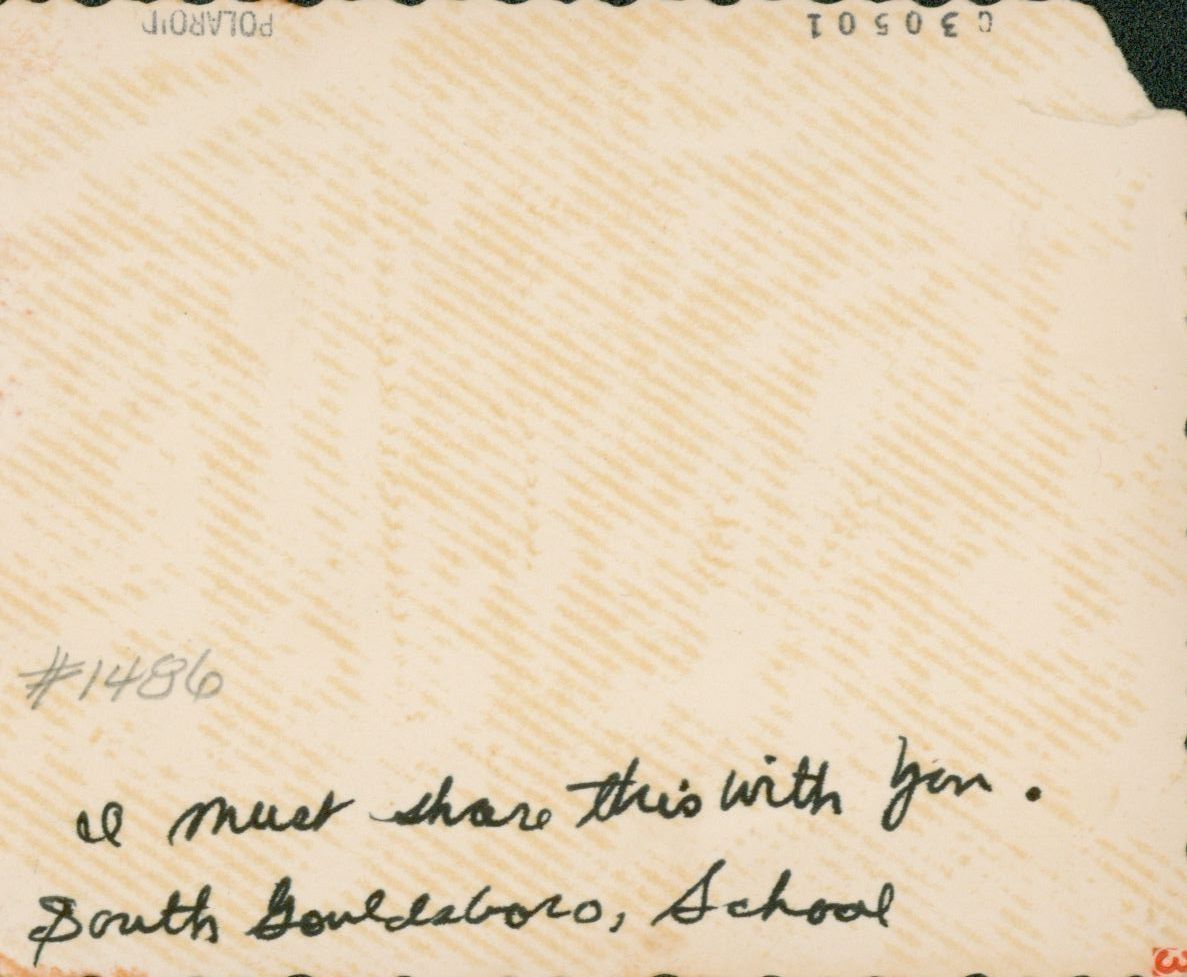 POLAROID
C30501
#1486
I must share this with you.
South Gouldsboro, School
3